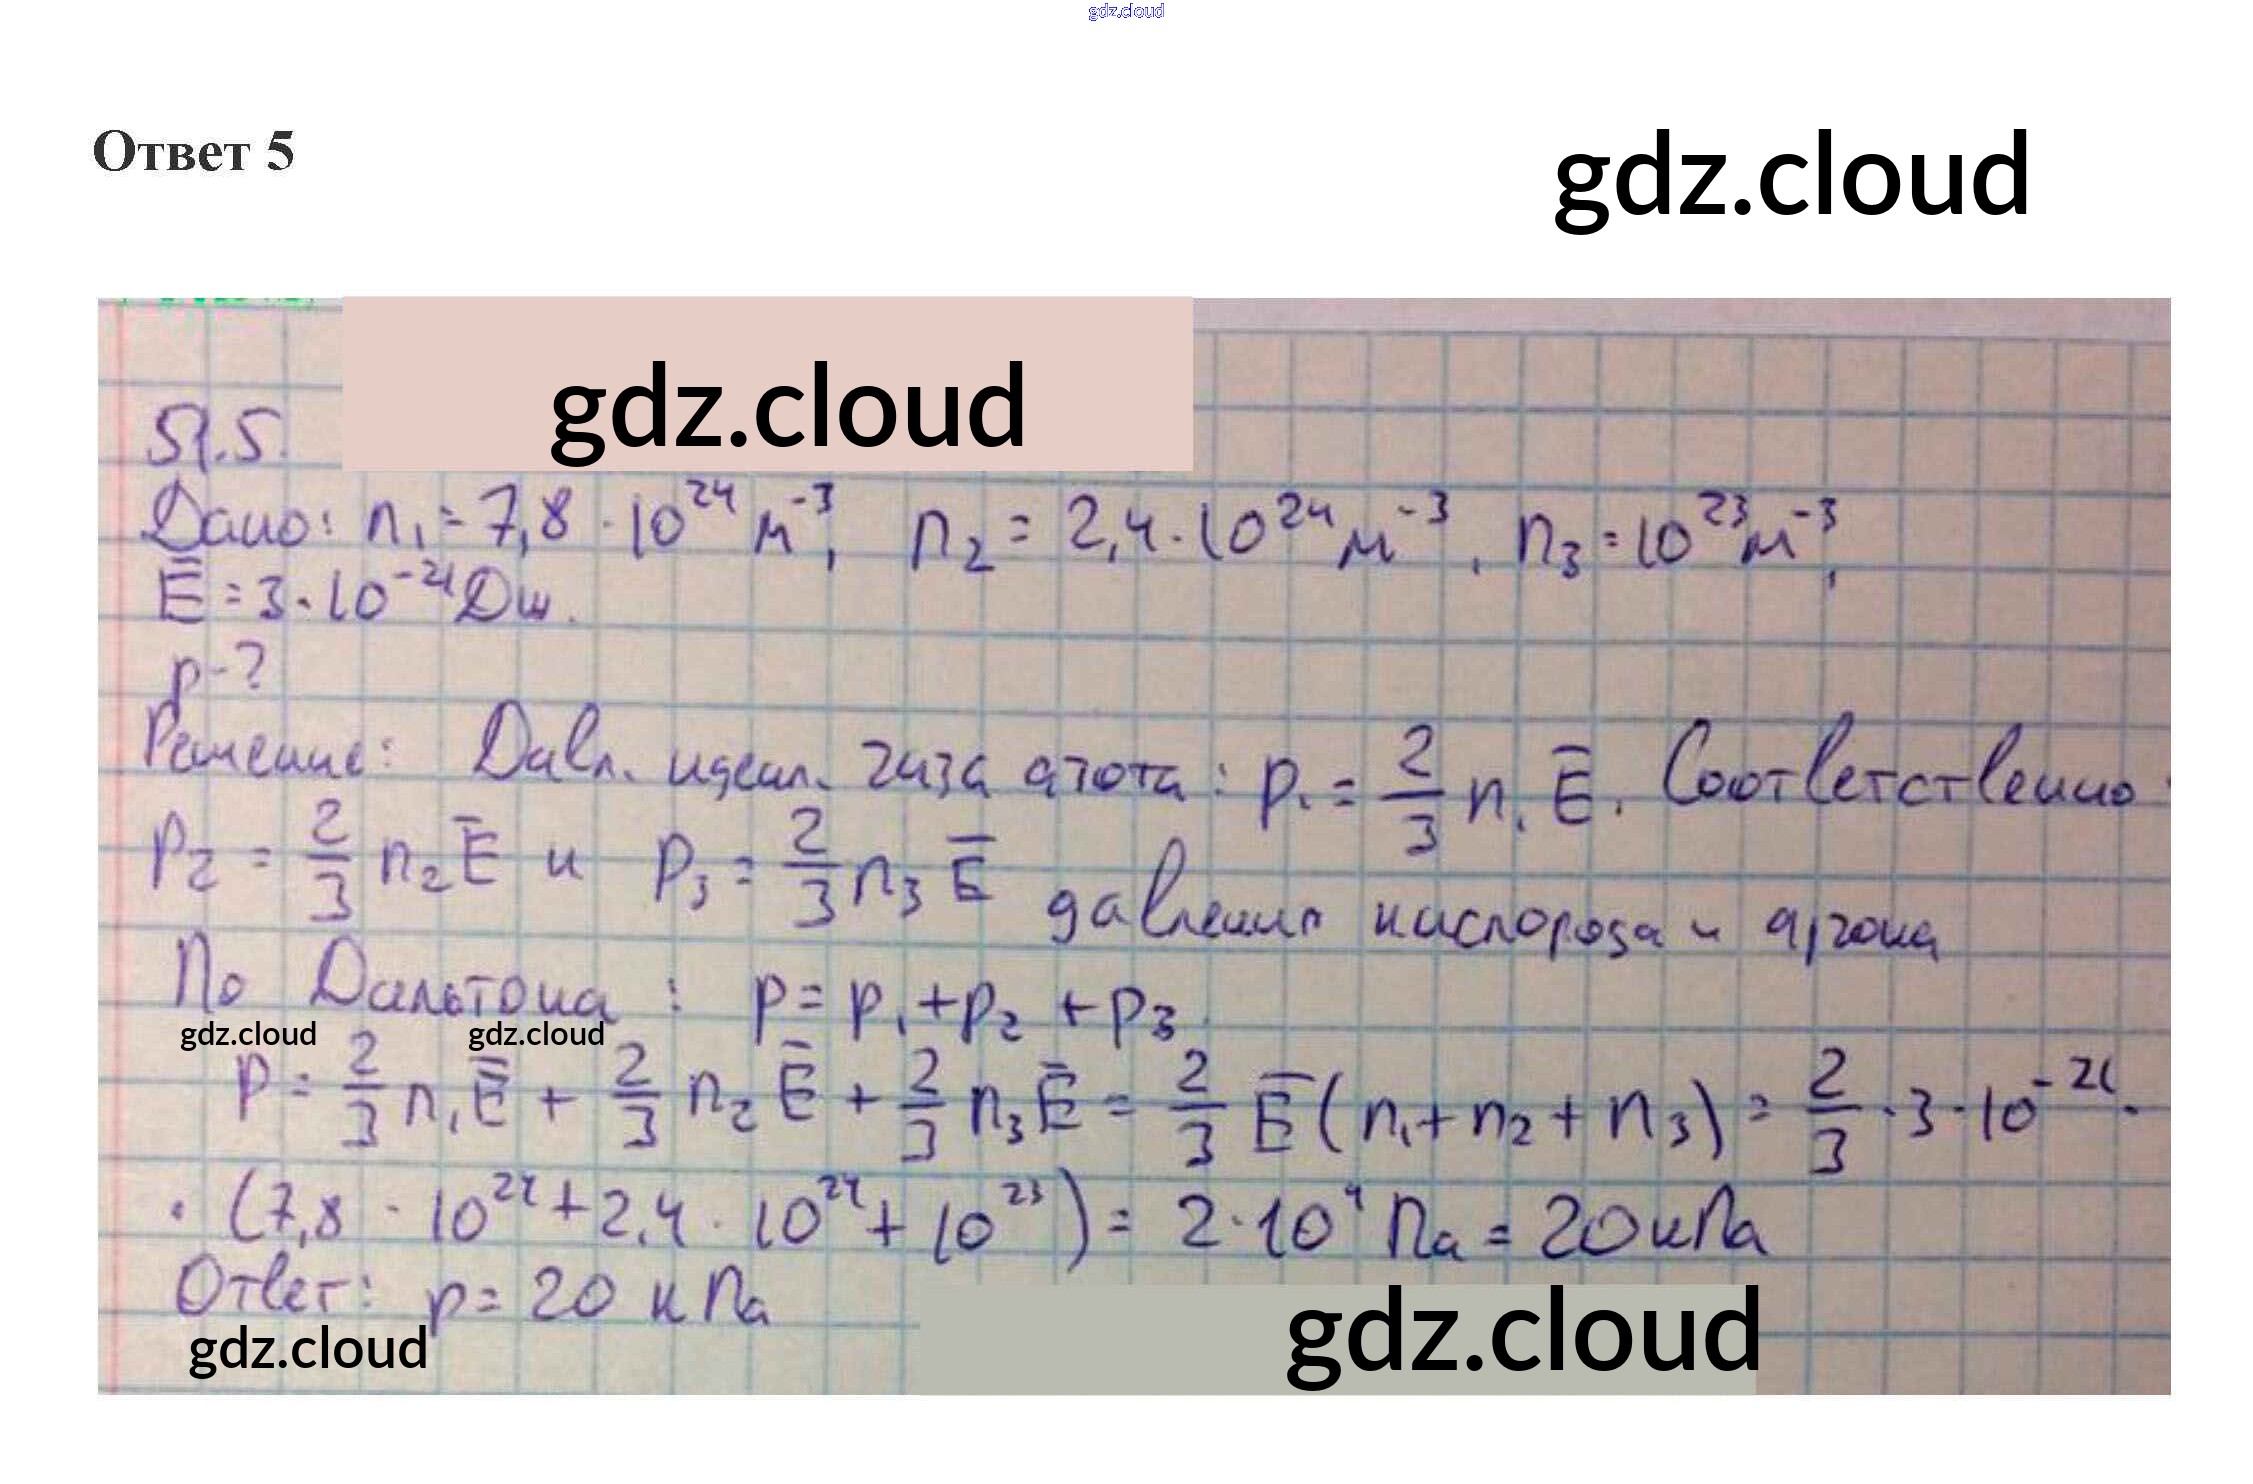 gdz.cloud
Ответ 5
gdz.cloud
gdz.cloud
51.5.
Дано: n₁ = 7,8 · 10²⁴ м⁻³, n₂ = 2,4 · 10²⁴ м⁻³, n₃ = 10²³ м⁻³,
E̅ = 3 · 10⁻²¹ Дж.
p - ?
Решение: Давл. идеал. газа азота: p₁ = 2/3 n₁ E̅. Соответственно
p₂ = 2/3 n₂ E̅ и p₃ = 2/3 n₃ E̅ давления кислорода и аргона
По Дальтона: p = p₁ + p₂ + p₃
gdz.cloud gdz.cloud
p = 2/3 n₁ E̅ + 2/3 n₂ E̅ + 2/3 n₃ E̅ = 2/3 E̅ (n₁ + n₂ + n₃) = 2/3 · 3 · 10⁻²¹ ·
· (7,8 · 10²⁴ + 2,4 · 10²⁴ + 10²³) = 2 · 10⁴ Па = 20 кПа
Ответ: p = 20 кПа
gdz.cloud
gdz.cloud